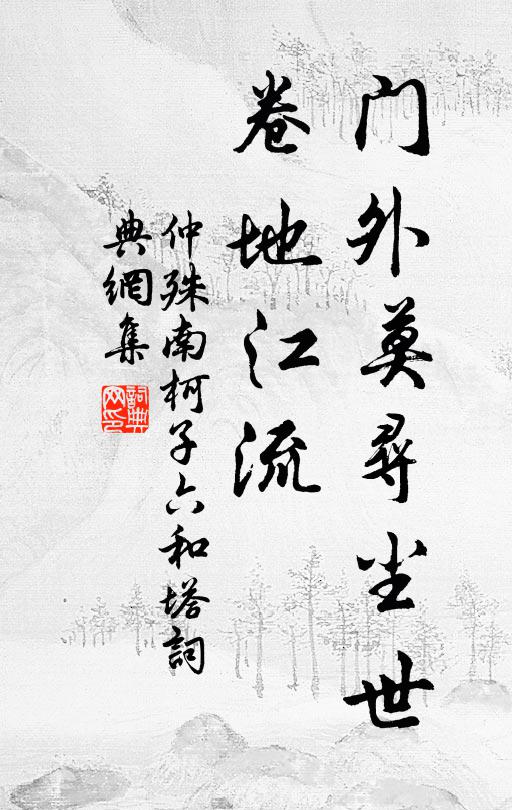 门外莫尋尘世
卷地江流
仲殊南柯子六和塔詞
典網集
詞典
网印